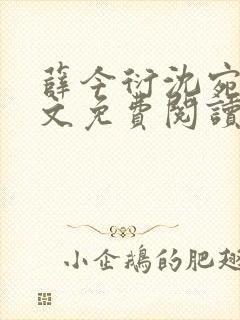 薛今衍沈宛
文免費閱讀
小企鵝的肥翅